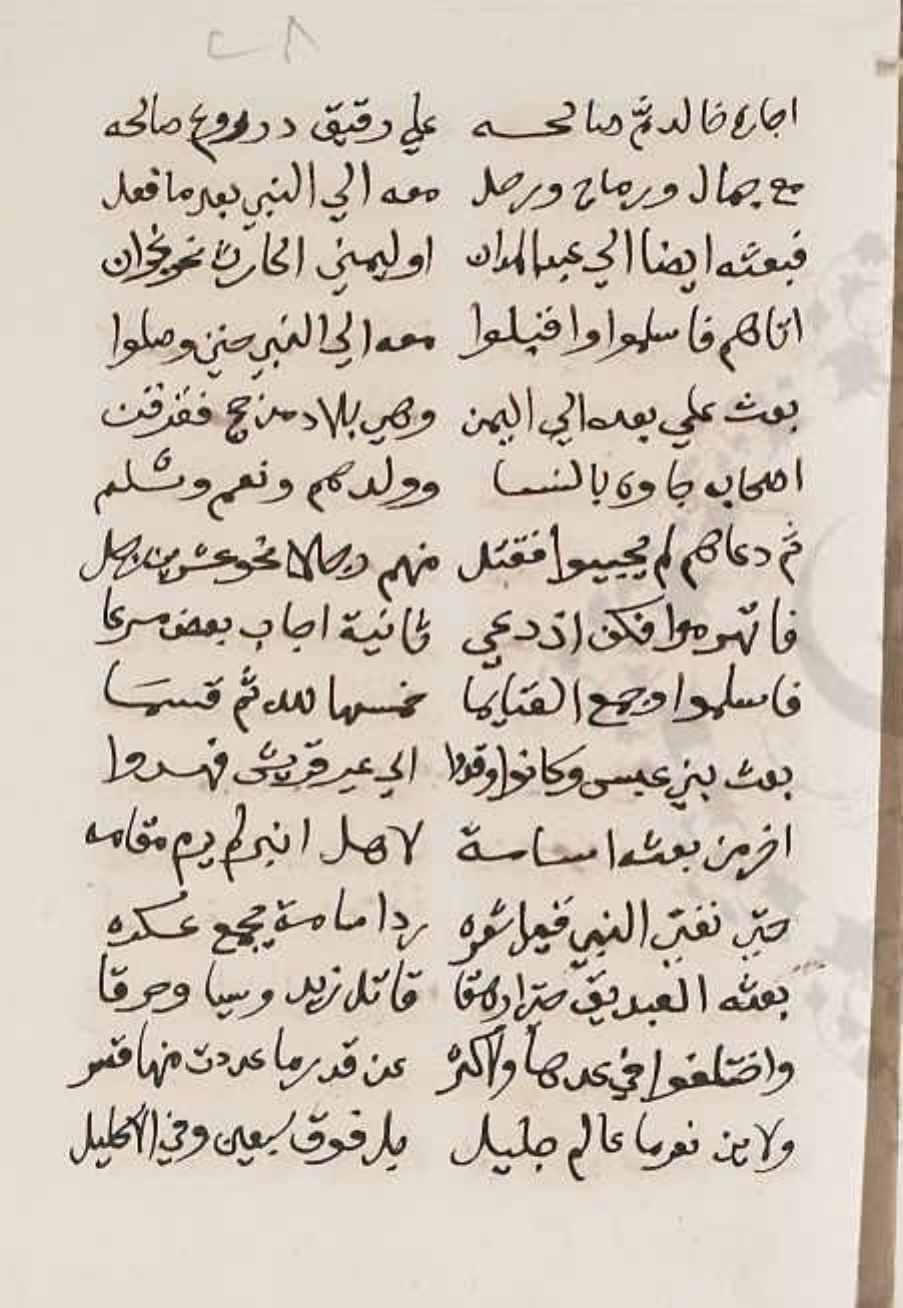 اجاره خالد ثم صالحه على رقيق دروع صالحه
مع جمال ورماح ورحل معه الي النبي بعد ما فعل
فبعثه ايضا الي عبد المدان او ليمني الحارث نحو نجران
اتاهم فاسلموا واقبلوا معه الي النبي حتي وصلوا
بعث علي بعده الي اليمن وهي بلاد مذحج ففرقت
اصحابه جاوه بالنسا وولدهم ونعم وشلم
ثم دعاهم لم يجيبوا فقتل منهم رجالا نحو عشرين رجل
فانهزموا فكف اذ دعي ثانية اجاب بعض مسرعا
فاسلموا وجمع الغنايما خمسها لله ثم قسما
بعث بني عبسى وكانوا وفدا الي عير قريش فهدوا
اخر من بعثه اسامة لاهل ابني لم يرم مقامه
حتي نفتي النبي قبل سفره ردا سامة بجمع عسكره
بعثه الصديق حتي ارهقا قاتل زيد وسبا وحرقا
واختلفوا في عدها والاكثر عن قدر ما عددت منها قصر
ولابن نصر ما عالم جليل بل فوق سبعين وفي الاكليل